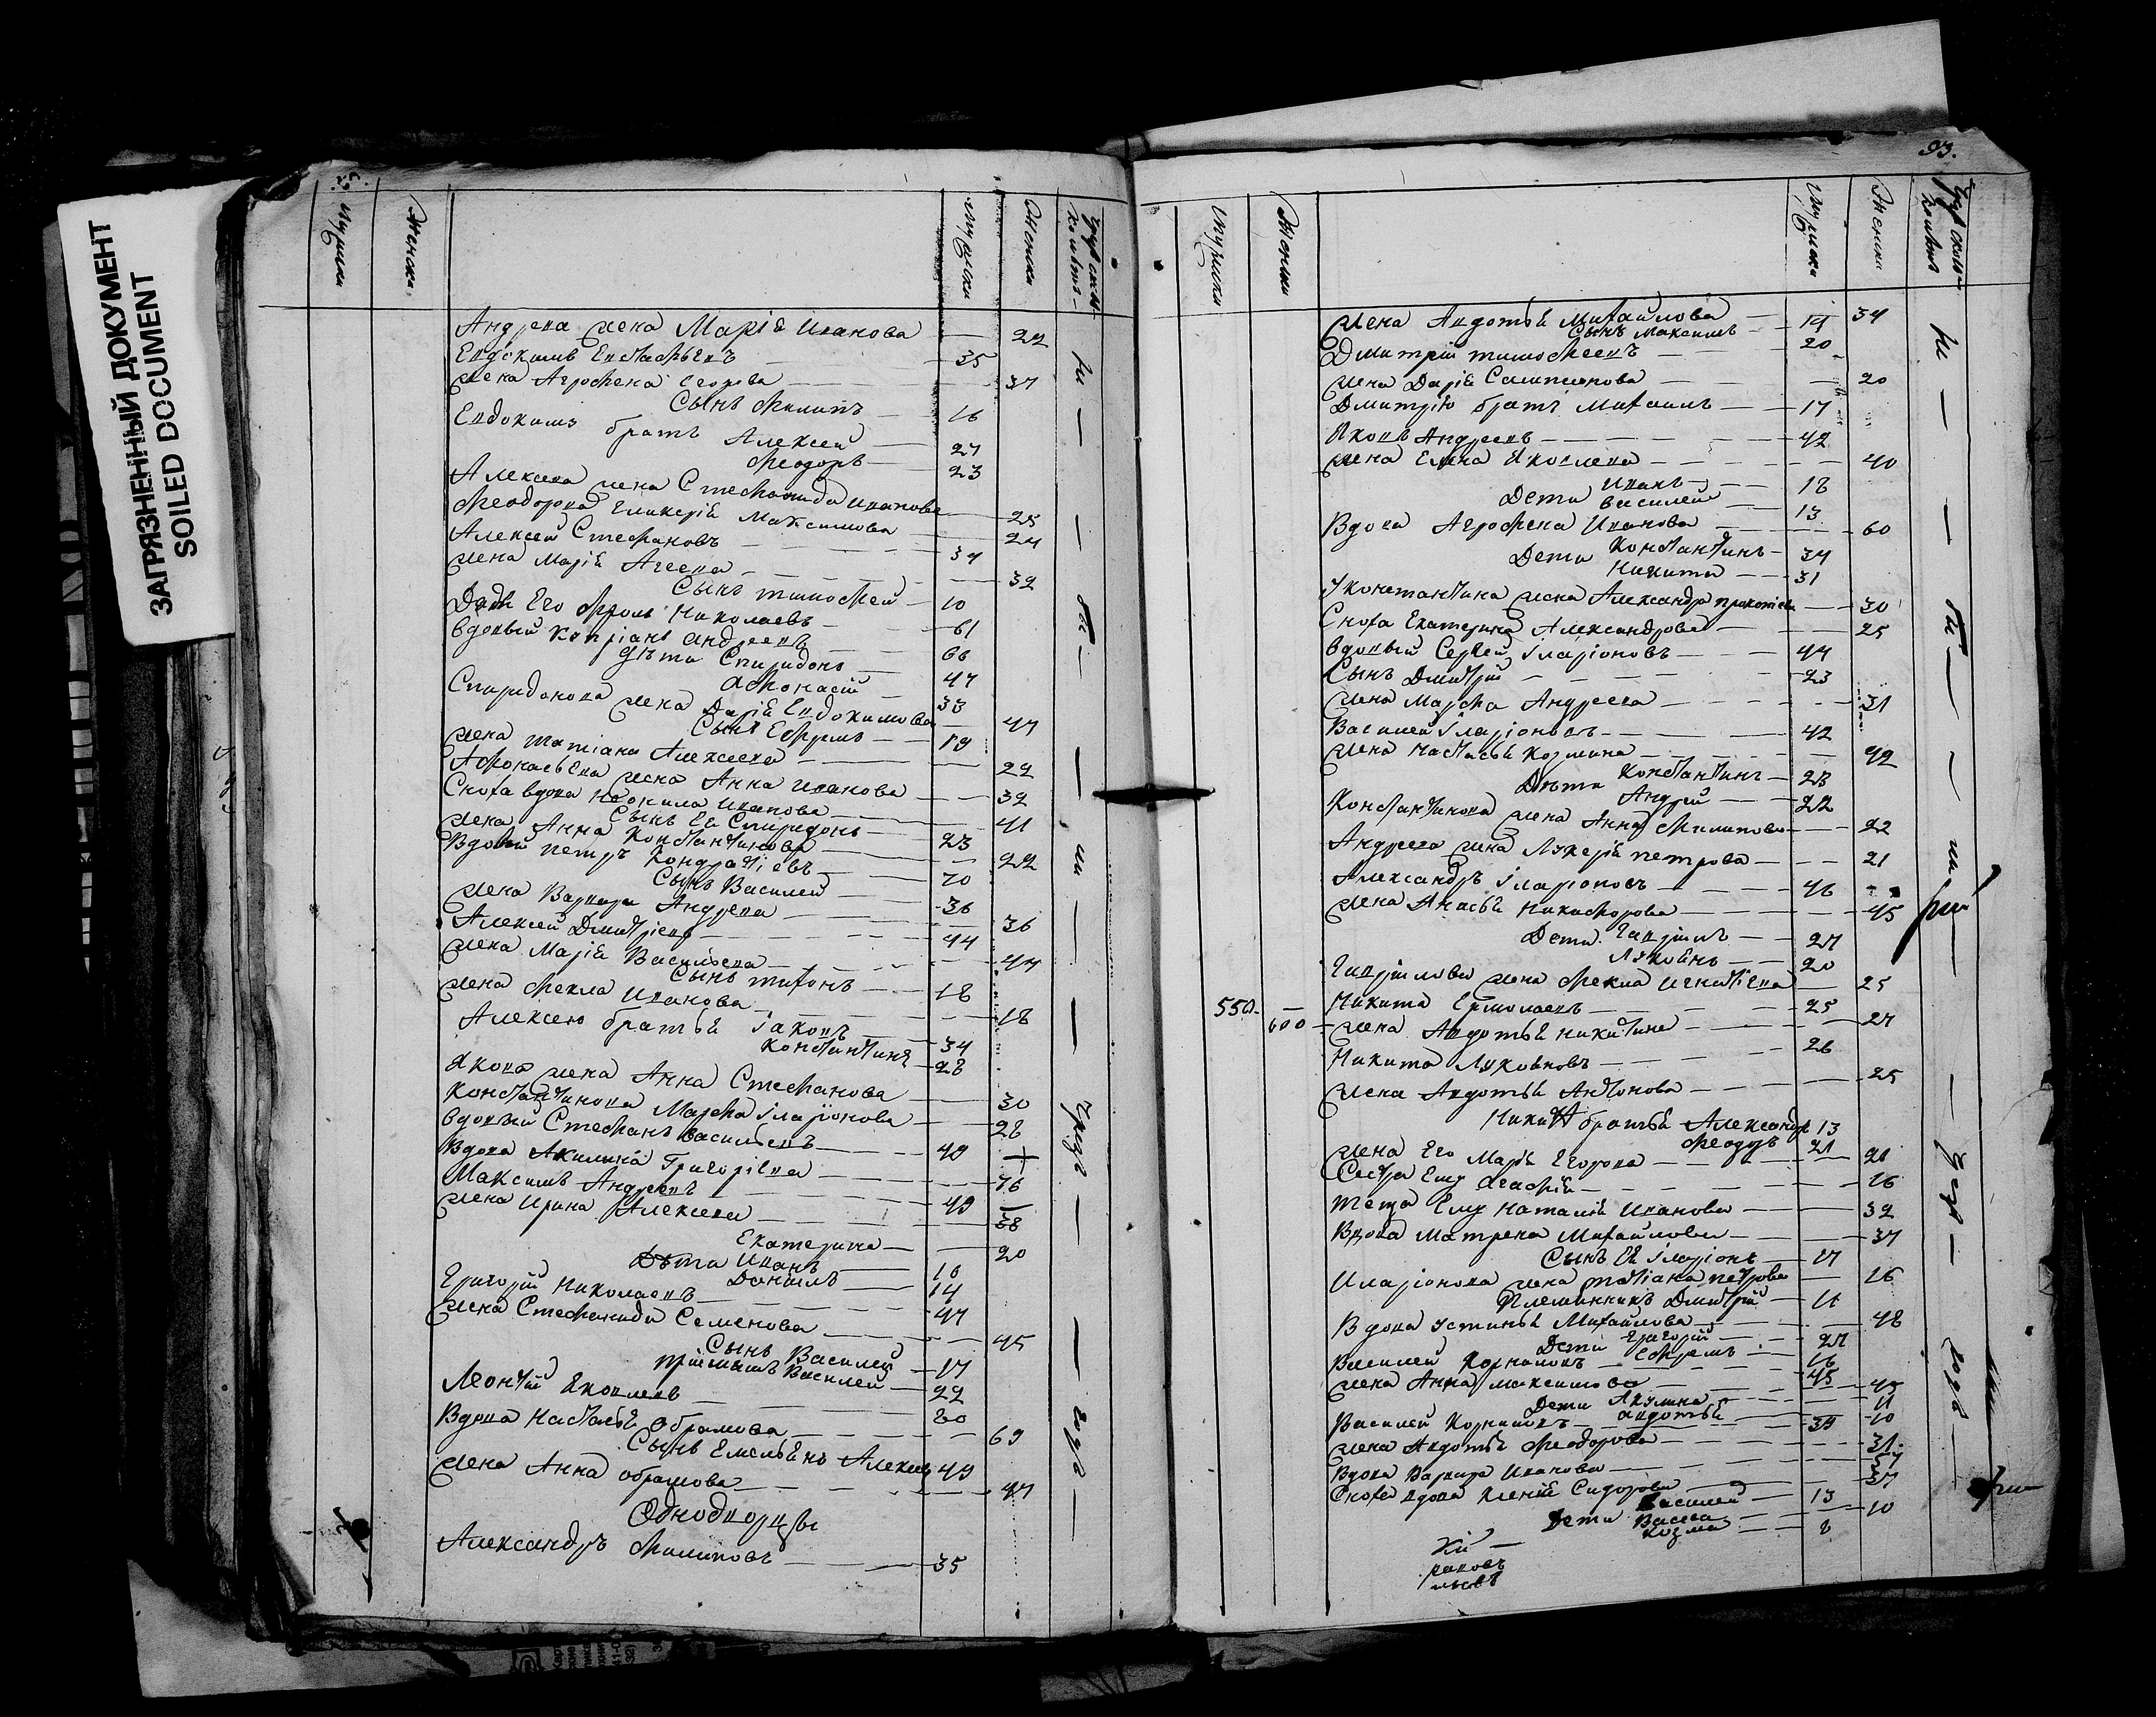 ЗАГРЯЗНЕННЫЙ ДОКУМЕНТ
SOILED DOCUMENT
Мужска
Женска
Мужска
Женска
Андреева жена Марія Иванова — 22
Евдокимъ Евстафьевъ — 35
жена Агрофена Егорова — 37
Сынъ Филипъ — 16
Евдокима братъ Алексей — 27
Феодоръ — 23
Алексеева жена Стефанида Иванова — 25
Феодорова Гликерія Максимова — 24
Алексей Стефановъ — 34
жена Марія Агеева — 32
Сынъ тимофей — 10
Дядя Его Фролъ Николаевъ — 61
вдовый Копріанъ андреевъ — 66
дѣти Спиридонъ — 47
Афонасій — 33
Спиридонова жена Дарія Евдокимова — 47
Сынъ Ефремъ — 19
жена татіана Алексеева — 22
Афонасьева жена Анна иванова — 32
Сноха вдова Неонила Иванова — 41
Сынъ Ея Спиридонъ — 23
жена Анна Константинова — 22
Вдовый петръ Кондратіевъ — 70
Сынъ Василей — 36
жена Варвара Андреева — 36
Алексей Дмитріевъ — 44
жена Марія Васильева — 44
Сынъ тихонъ — 18
жена Фекла Иванова — 18
Алексею братья Іаковъ — 34
Константинъ — 28
Якова жена Анна Стефанова — 30
Константинова Марфа Іларіонова — 28
вдовый Стефанъ васильевъ — 49
Вдова Акилина Григоріева — 76
Максимъ Андреевъ — 49
жена Ирина Алексеева — 38
Екатерина — 20
Дѣти Иванъ — 16
Данилъ — 14
Григорій Николаевъ — 47
жена Стефанида Семенова — 45
Сынъ Василей — 17
пріимышъ Василей — 22
Леонтій Яковлевъ — 60
Вдова Настасья Абрамова — 69
Сынъ Емельянъ Алексеев 49
жена Анна абрамова — 47
Однодворцы
Александръ Филиповъ — 35
93.
Мужска
Женска
Мужска
Женска
жена Авдотья Михайлова — 34
Сынъ Максимъ — 14
Дмитрій тимофеевъ — 20
жена Дарія Сампсонова — 20
Дмитрію братъ Михаилъ — 17
Яковъ Андреевъ — 42
жена Елена Яковлева — 40
Дети Иванъ — 18
Василей — 13
Вдова Агрофена Иванова — 60
Дети Константинъ — 34
Никита — 31
У Константина жена Александра прокофьева — 30
Сноха Екатерина Александрова — 25
вдовый Сергей Іларіоновъ — 44
Сынъ Дмитрій — 23
жена Марфа Андреева — 31
Василей Іларіоновъ — 42
жена Настасья Козмина — 42
Дѣти Константинъ — 28
Андрей — 22
Константинова жена Анна Филипова — 22
Андреева жена Лукерія петрова — 21
Александръ Іларіоновъ — 46
жена Анасья Никифорова — 45
Дети Гаврилъ — 27
Лукоянъ — 20
Гаврилова жена Фекла Игнатіева — 25
550 — Никита Ермолаевъ — 25
600 — жена Авдотья никитина — 27
Никита Лукояновъ — 26
жена Авдотья Антонова — 25
Никит братья Александръ 13
Феодоръ — 21
жена Его Марія Егорова — 21
Сестра Ему Агафія — 16
теща Ему Наталія Иванова — 32
Вдова Матрена Михайлова — 37
Сынъ Ея Іларіонъ — 17
Иларіонова жена татіана петрова — 16
Племянникъ Дмитрій — 11
Вдова Устинья Михайлова — 48
Дети Григорій — 27
Ефремъ — 16
Василей Корнаковъ — 45
жена Анна Максимова — 45
Дети Акулина — 11
авдотья — 10
Василей Корнаковъ — 34
жена Авдотья Феодорова — 31
Вдова Варвара Иванова — 57
Сноха вдова Ксенія Сидорова — 37
Дети Василей — 13
Васса — 10
Козма — 8